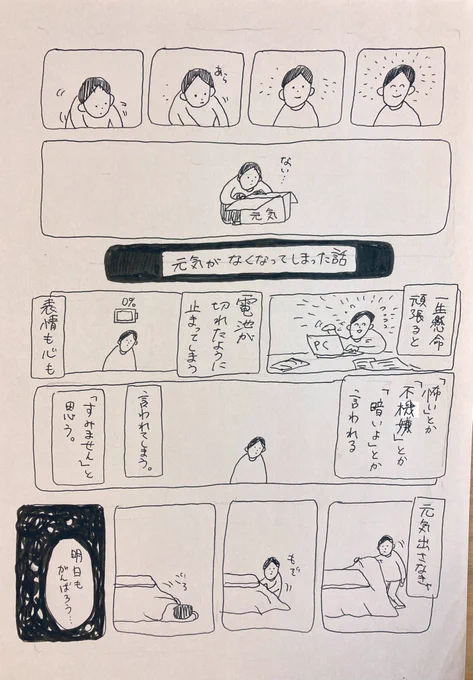 ない…
元気
元気が なくなってしまった話
一生懸命
頑張ると
PC
電池が
切れたように
止まってしまう
0%
表情も心も
「怖い」とか
「不機嫌」とか
「暗いよ」とか
言われる
言われてしまう。
「すみません」と
思う。
元気出さなきゃ
明日も
がんばろう…